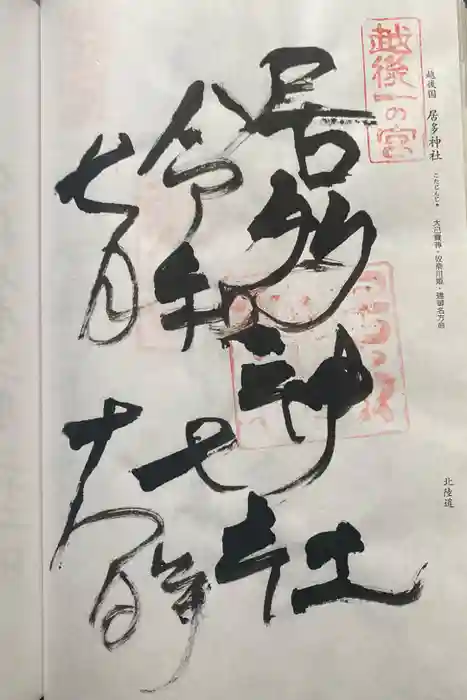 越後一の宮
越後国 居多神社 こたじんじゃ 大己貴神・奴奈川姫・建御名方命
北陸道
居多神社
令和七年
七月十 日